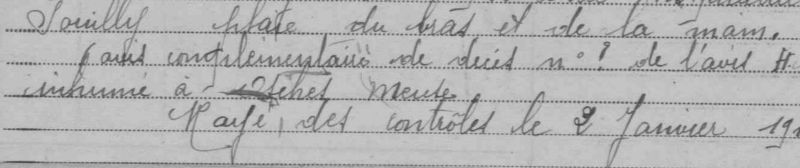 Souilly plaie du bras et de la main.
(avis complémentaire de décès n° de l'avis
inhumé à Osches Meuse
Rayé des contrôles le 2 Janvier 19